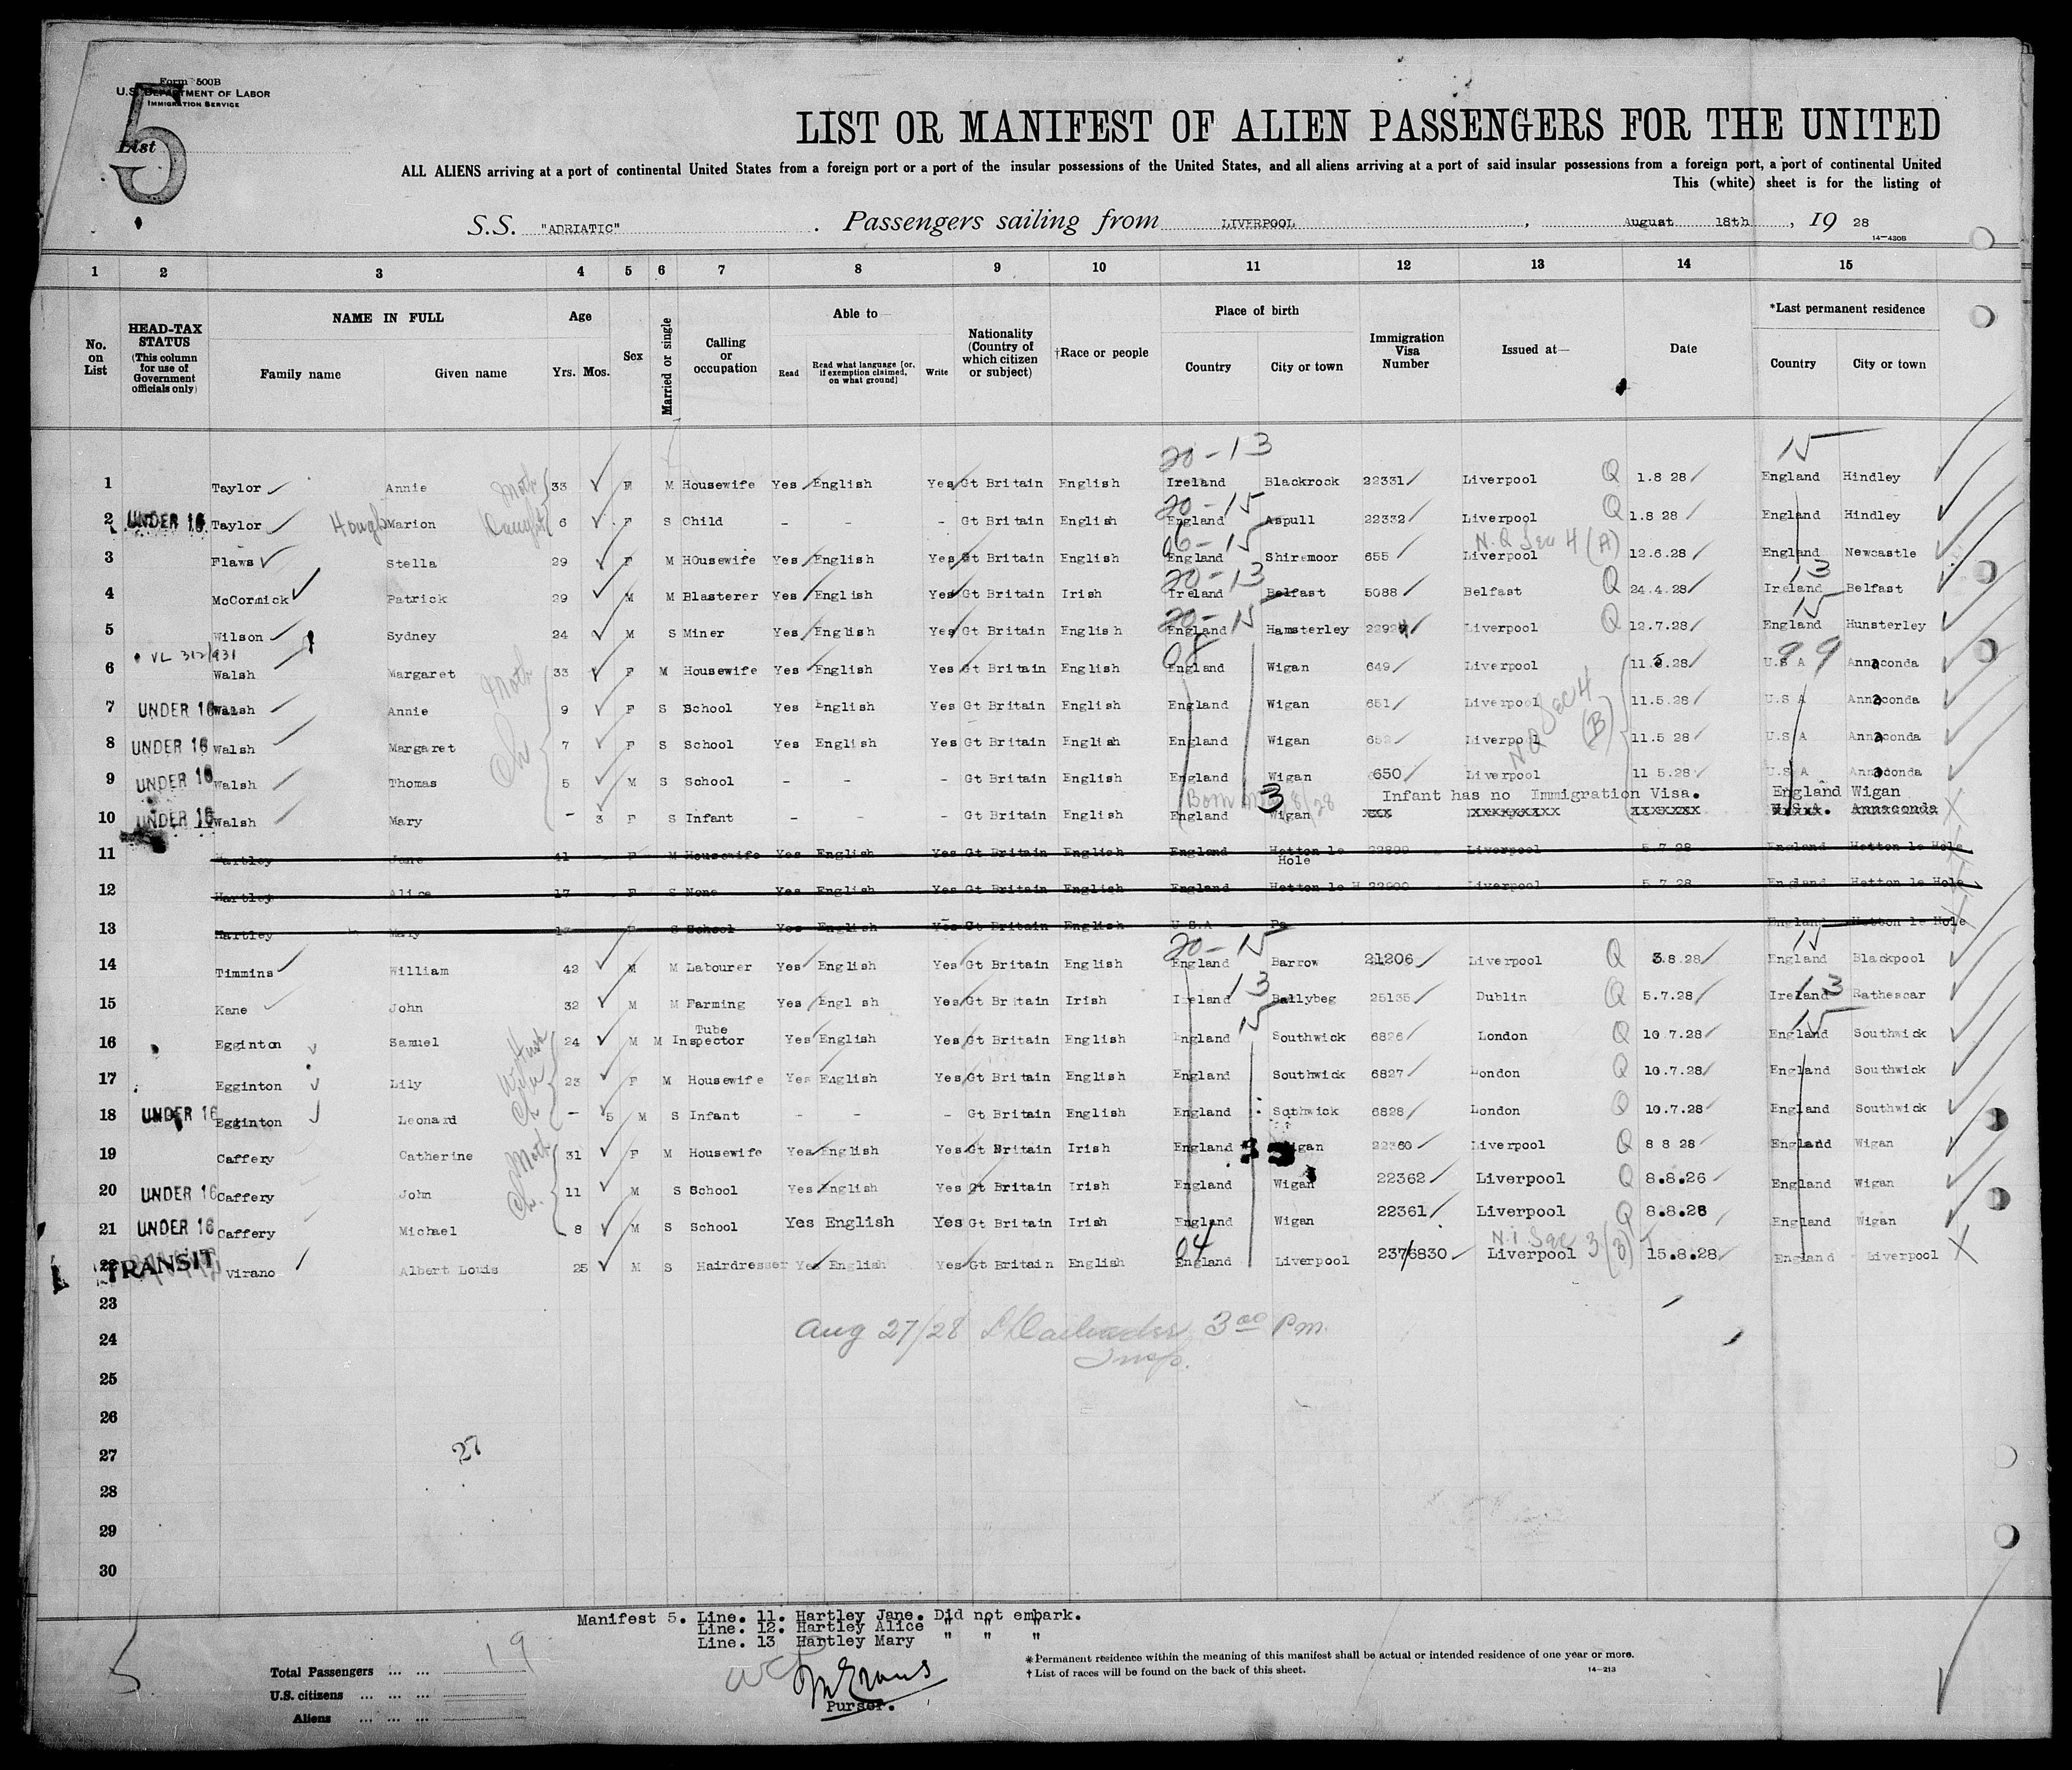 Form 500B
U.S. DEPARTMENT OF LABOR
IMMIGRATION SERVICE
List 5
LIST OR MANIFEST OF ALIEN PASSENGERS FOR THE UNITED
ALL ALIENS arriving at a port of continental United States from a foreign port or a port of the insular possessions of the United States, and all aliens arriving at a port of said insular possessions from a foreign port, a port of continental United
This (white) sheet is for the listing of
S.S. "ADRIATIC" . Passengers sailing from LIVERPOOL , August 18th , 19 28
14—430B
1 2 3 4 5 6 7 8 9 10 11 12 13 14 15
No. on List HEAD-TAX STATUS (This column for use of Government officials only) NAME IN FULL Family name Given name Age Yrs. Mos. Sex Married or single Calling or occupation Able to Read Read what language [or, if exemption claimed, on what ground] Write Nationality (Country of which citizen or subject) †Race or people Place of birth Country City or town Immigration Visa Number Issued at— Date *Last permanent residence Country City or town
20-13 15
1 Taylor Annie Moth 33 F M Housewife Yes English Yes Gt Britain English Ireland Blackrock 22331 Liverpool Q 1.8 28 England Hindley
20-15
2 UNDER 16 Taylor Hough Marion Daught 6 F S Child - - - Gt Britain English England Aspull 22332 Liverpool Q 1.8 28 England Hindley
06-15 N.Q Sec 4 (A)
3 Flaws Stella 29 F M HOusewife Yes English Yes Gt Britain English England Shiremoor 655 Liverpool 12.6.28 England Newcastle
20-13 13
4 McCormick Patrick 29 M M Blasterer Yes English Yes Gt Britain Irish Ireland Belfast 5088 Belfast Q 24.4.28 Ireland Belfast
20-15 15
5 Wilson Sydney 24 M S Miner Yes English Yes Gt Britain English England Hamsterley Liverpool Q 12.7.28 England Hunsterley
VL 312/931 08 99
6 Walsh Margaret Moth 33 F M Housewife Yes English Yes Gt Britain English England Wigan 649 Liverpool 11.5.28 U.S A Annaconda
7 UNDER 16 Walsh Annie 9 F S School Yes English Yes Gt Britain English England Wigan 651 Liverpool NQ Sec 4 (B) 11.5.28 U.S A Annaconda
8 UNDER 16 Walsh Margaret Ch 7 F S School Yes English Yes Gt Britain English England Wigan 652 Liverpool 11.5 28 U.S A Annaconda
9 UNDER 16 Walsh Thomas 5 M S School - - - Gt Britain English England Wigan 650 Liverpool 11 5.28 U.S A Annaconda
(Born May 8/28 3 Infant has no Immigration Visa. England Wigan
10 UNDER 16 Walsh Mary - 3 F S Infant - - - Gt Britain English England Wigan xxx xxxxxxxxx xxxxxxx U.S.A. Annaconda
11 Hartley Jane 41 F M Housewife Yes English Yes Gt Britain English England Hetton le Hole Liverpool 5.7 28 England Hetton le Hole
12 Hartley Alice 17 F S None Yes English Yes Gt Britain English England Hetton le H 22900 Liverpool 5 7 28 England Hetton le Hole
13 Hartley Mary F S School Yes English Yes Gt Britain English U.S.A Pa England Hetton le Hole
20-15 15
14 Timmins William 42 M M Labourer Yes English Yes Gt Britain English England Barrow 21206 Liverpool Q 3.8.28 England Blackpool
13 13
15 Kane John 32 M M Farming Yes English Yes Gt Britain Irish Ireland Ballybeg 25135 Dublin Q 5.7.28 Ireland Rathescar
15 15
16 Egginton Samuel Husb 24 M M Tube Inspector Yes English Yes Gt Britain English England Southwick 6826 London Q 10 7.28 England Southwick
17 Egginton Lily Wife 23 F M Housewife Yes English Yes Gt Britain English England Southwick 6827 London Q 10.7.28 England Southwick
18 UNDER 16 Egginton Leonard Ch - 5 M S Infant - - - Gt Britain English England Sothwick 6828 London Q 10.7.28 England Southwick
19 Caffery Catherine Moth 31 F M Housewife Yes English Yes Gt Britain Irish England Wigan 22360 Liverpool Q 8 8 28 England Wigan
20 UNDER 16 Caffery John Ch. 11 M S School Yes English Yes Gt Britain Irish England Wigan 22362 Liverpool Q 8.8.26 England Wigan
21 UNDER 16 Caffery Michael 8 M S School Yes English Yes Gt Britain Irish England Wigan 22361 Liverpool Q 8.8.28 England Wigan
04 N.I Sec 3 (3)
22 TRANSIT Virano Albert Louis 25 M S Hairdresser Yes English Yes Gt Britain English England Liverpool 237/6830 Liverpool 15.8.28 England Liverpool
23
24 Aug 27/28 3 00 P.m.
Insp.
25
26
27 27
28
29
30
Manifest 5. Line. 11. Hartley Jane. Did not embark.
Line. 12. Hartley Alice " " "
Line. 13 Hartley Mary " " "
Total Passengers ... ... 19
U.S. citizens ... ... ...
Aliens ... ... ...
M Evans
Purser.
*Permanent residence within the meaning of this manifest shall be actual or intended residence of one year or more.
† List of races will be found on the back of this sheet. 14—213